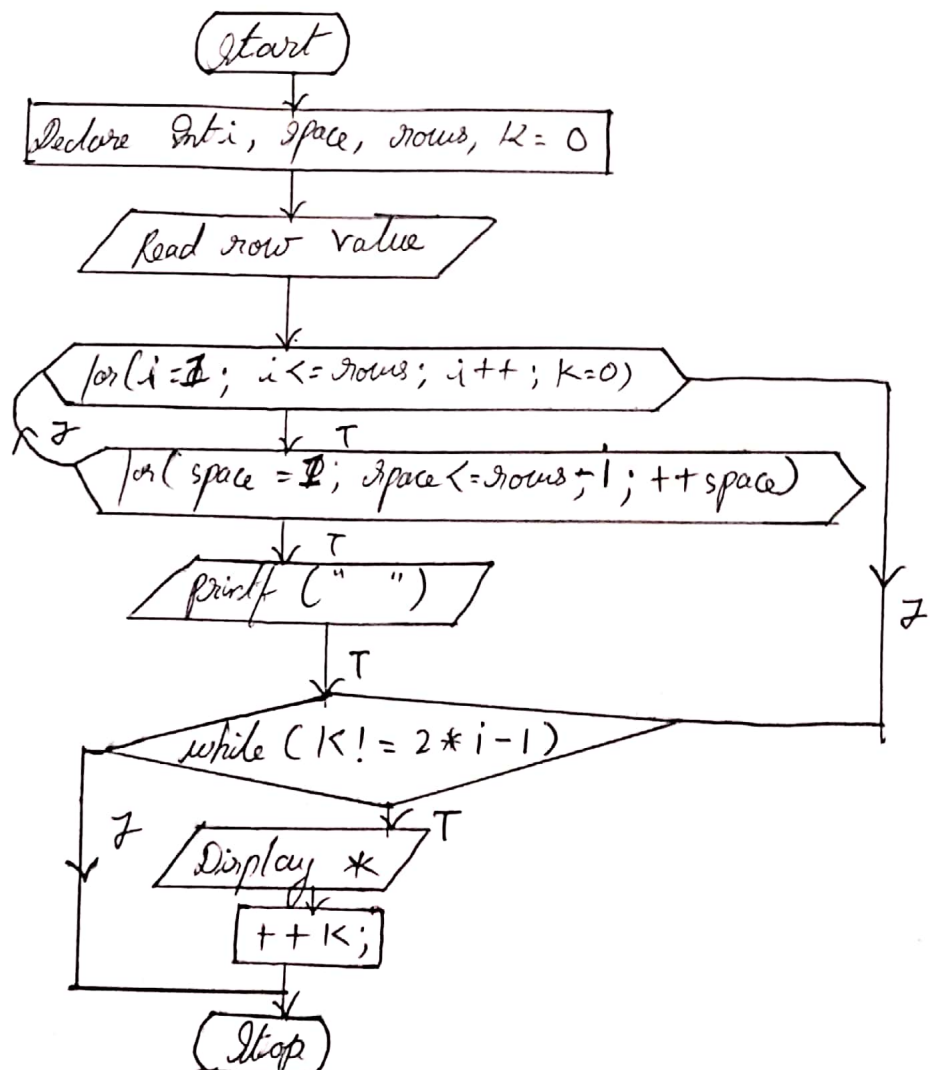 Start
Declare Int i, space, rows, K = 0
Read row value
for(i=1; i<=rows; i++; K=0)
F
T
for(space = 1; space<=rows-1; ++space)
T
printf (" ")
F
T
while (K! = 2*i-1)
F
T
Display *
++K;
Stop